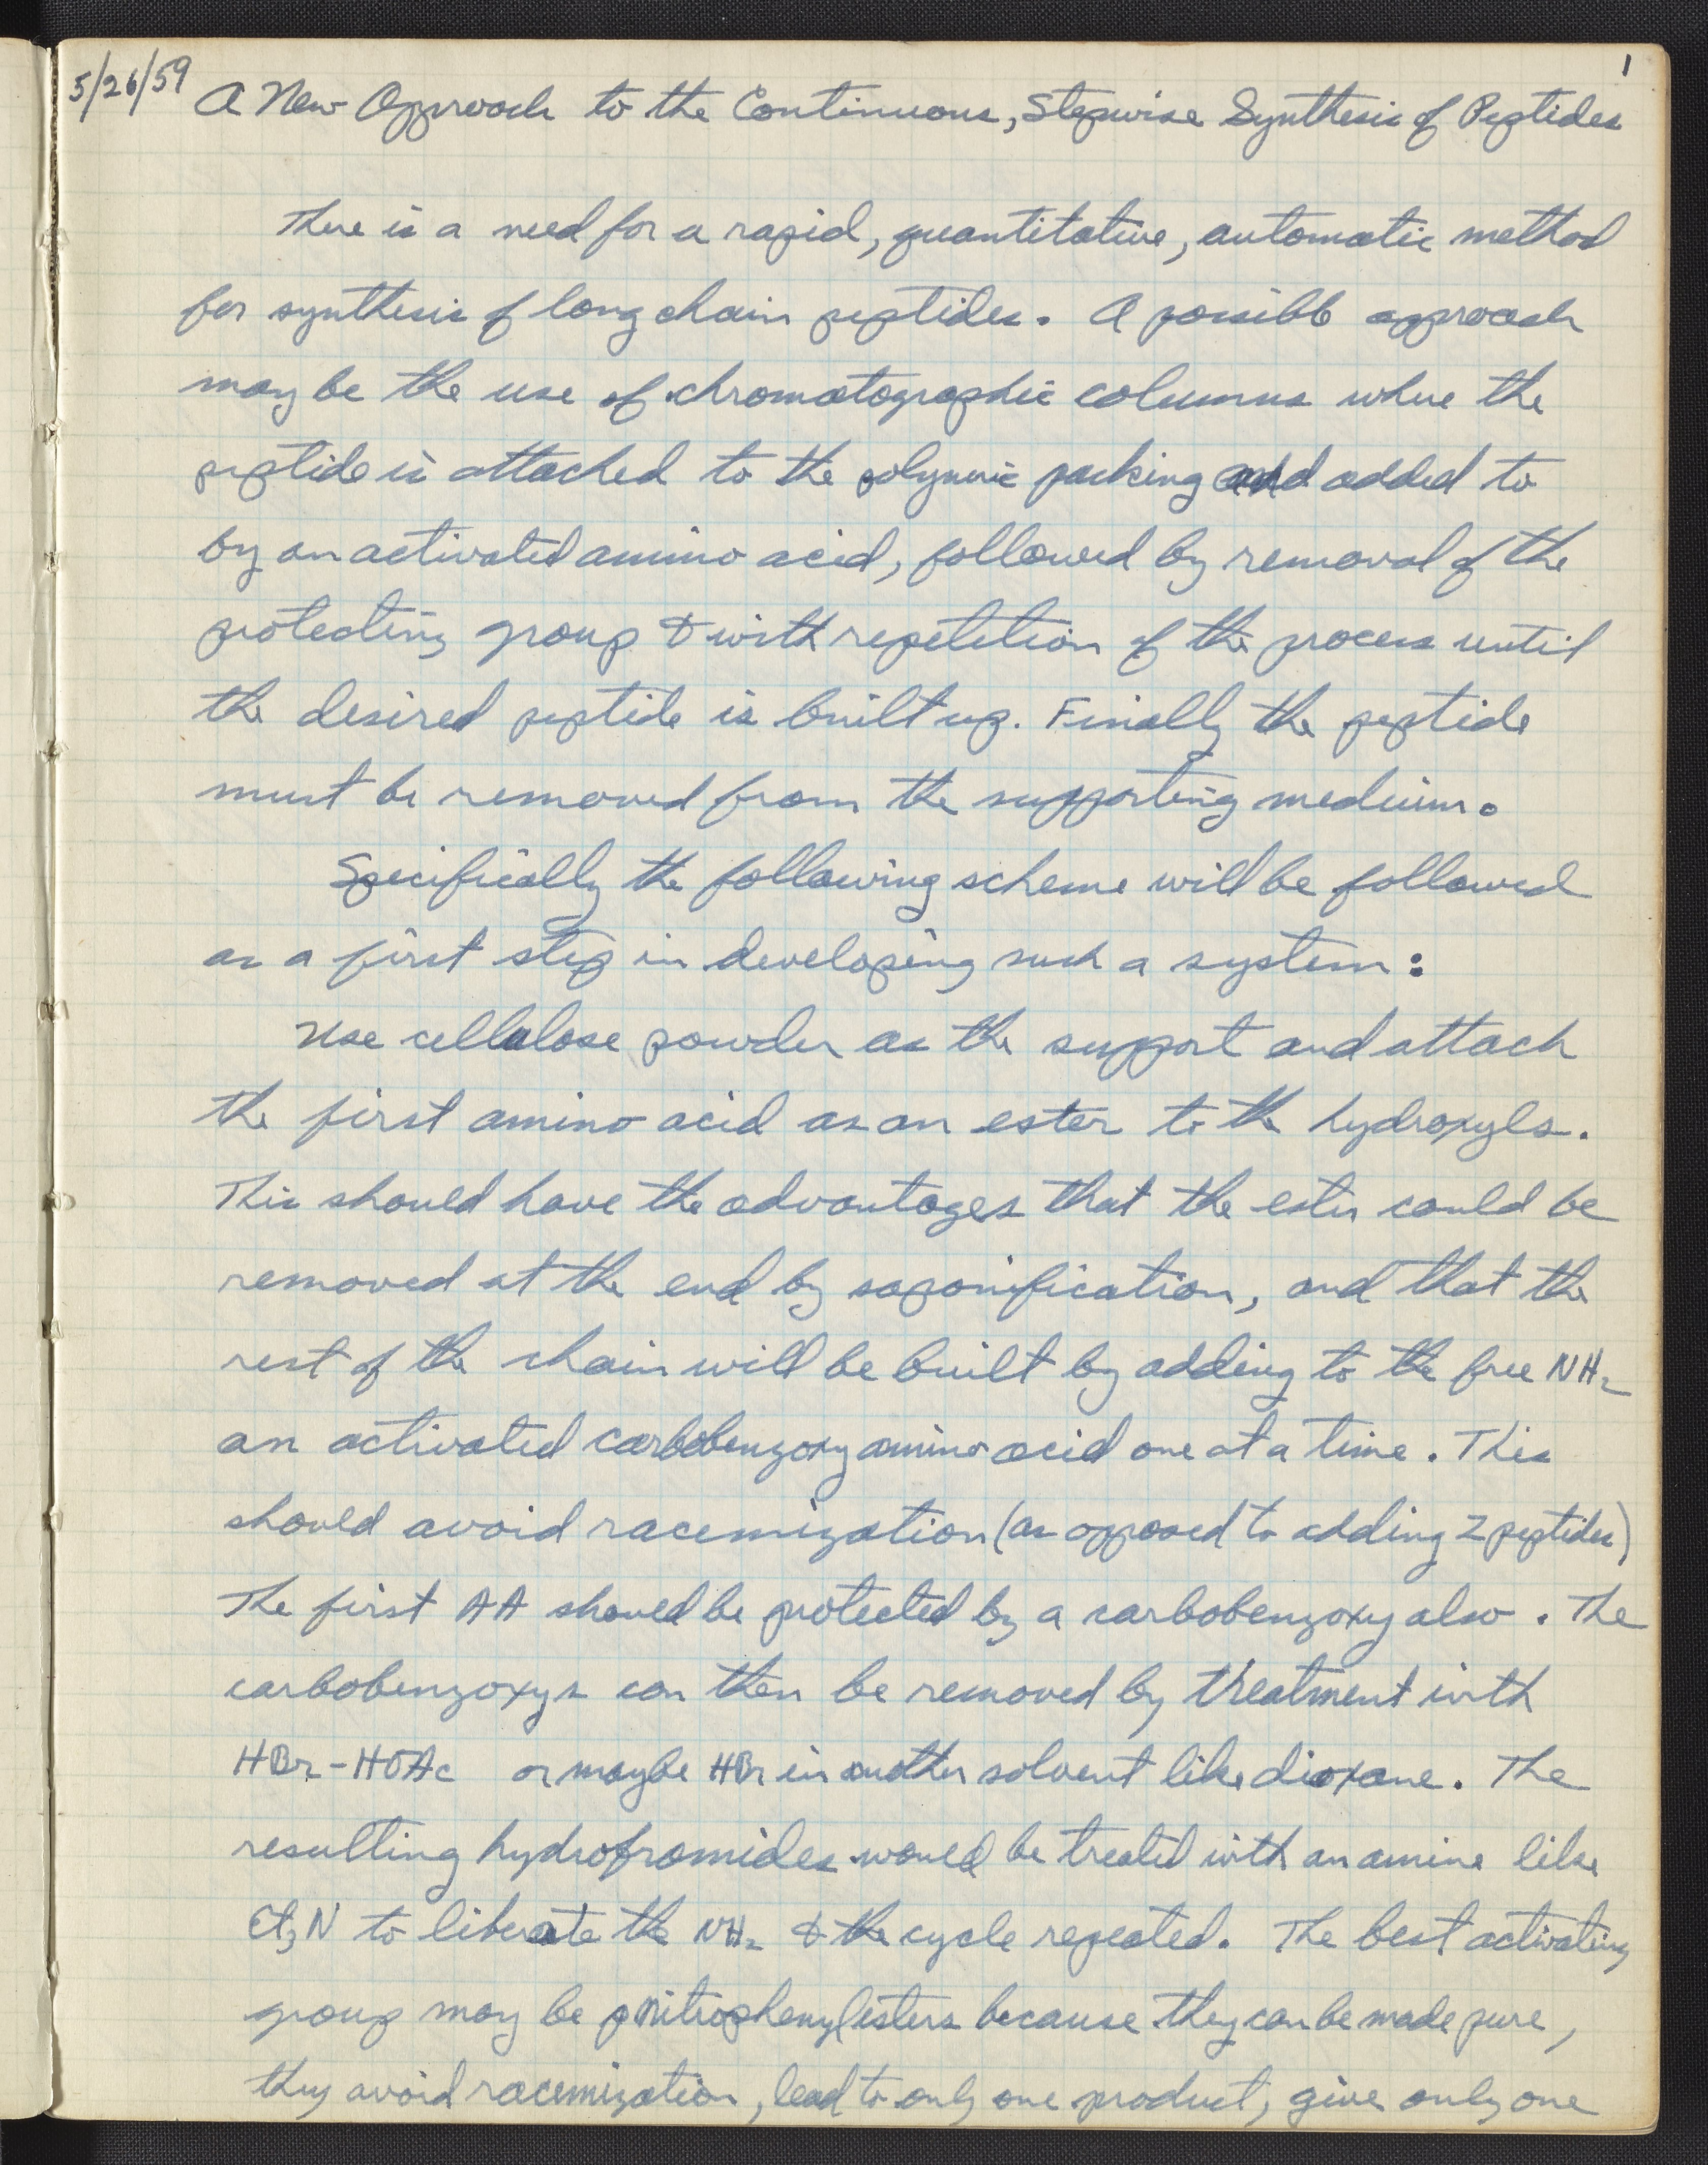 1
5/26/59 A New Approach to the Continuous, Stepwise Synthesis of Peptides
There is a need for a rapid, quantitative, automatic method
for synthesis of long chain peptides. A possible approach
may be the use of chromatographic columns where the
peptide is attached to the polymeric packing and added to
by an activated amino acid, followed by removal of the
protecting group & with repetition of the process until
the desired peptide is built up. Finally the peptide
must be removed from the supporting medium.
Specifically the following scheme will be followed
as a first step in developing such a system:
Use cellulose powder as the support and attach
the first amino acid as an ester to the hydroxyls.
This should have the advantages that the ester could be
removed at the end by saponification, and that the
rest of the chain will be built by adding to the free NH2
an activated carbobenzoxy amino acid one at a time. This
should avoid racemization (as opposed to adding 2 peptides)
The first AA should be protected by a carbobenzoxy also. The
carbobenzoxys can then be removed by treatment with
HBr-HOAc or maybe HBr in another solvent like dioxane. The
resulting hydrobromides would be treated with an amine like
Et3N to liberate the NH2 & the cycle repeated. The best activating
group may be p nitrophenyl esters because they can be made pure,
they avoid racemization, lead to only one product, give only one